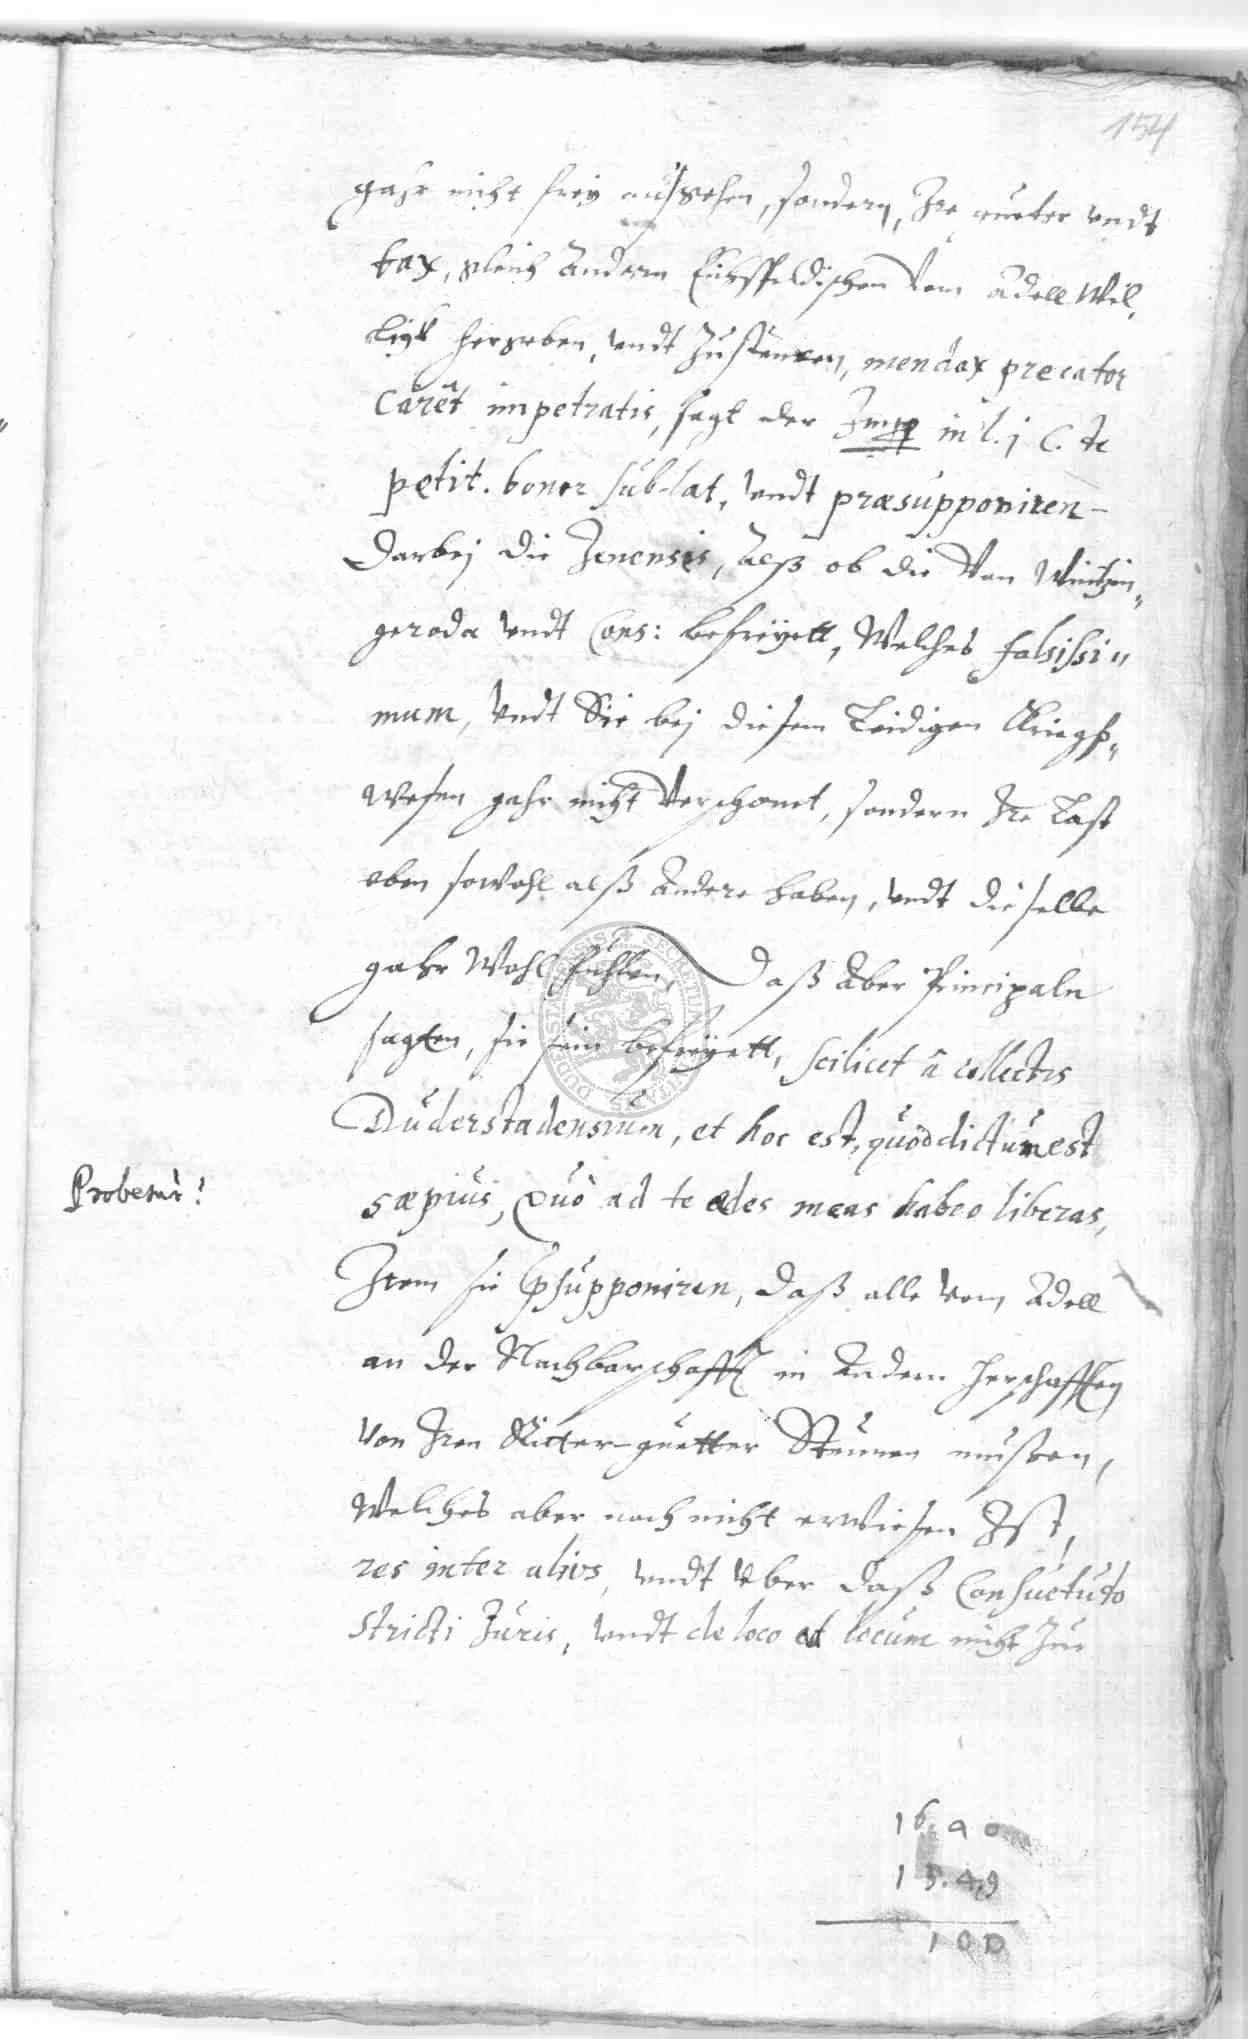 154
gahr nicht frey außgehen, sondern, Ire gueter undt
tax, gleich Andern Eichßfeldischen Vom Adell Wil,
ligk hergeben, undt Zusteuren, mendax precator
Caret impetratis, sagt der Imp in l. j C. de
petit. bonor sublat, undt præsupponiren
Darbej die Jenenses, Alß ob die Von Wintzin„
geroda undt Cons: befreÿett, Welches falsissi„
mum, undt Sie bej diesem Leidigen Kriegß„
Wesen gahr nicht Verschonet, sondern Ire Last
eben sowohl alß Andere haben, undt dieselbe
gahr Wohl fuhlen, Daß Aber Principaln
sagten, sie sein befreÿett, scilicet â collectis
Duderstadensium, et hoc est, quod dictum est
Probetur!
sæpius, Quo ad te ædes meas habeo liberas,
Item sie psupponiren, Daß alle Vom Adell
an der Nachbarschafft in Andern Herschafften
Von Iren Ritter-guetter Steuren mußen,
Welches aber noch nicht erwiesen Ist,
res inter alios, undt Vber daß Consuetudo
stricti Juris, undt de loco ad locum nicht Zue
16.90
15.49
100